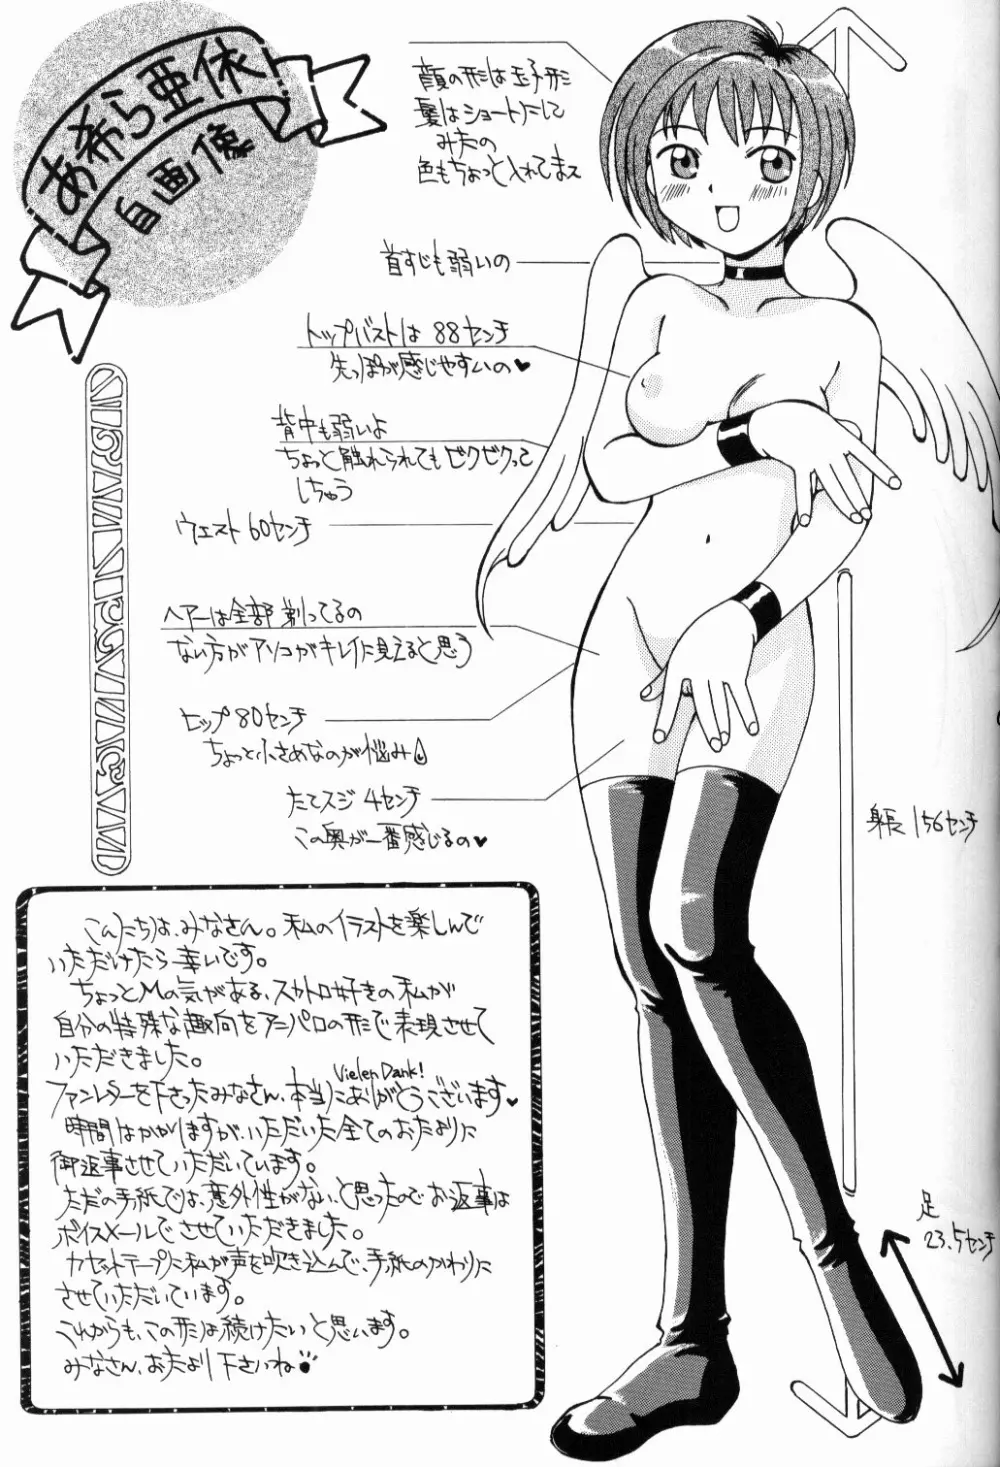 あ希ら亜依
自画像
顔の形は玉子形
髪はショートにして
みたの
色もちょっと入れてまス
首すじも弱いの
トップバストは 88センチ
先っぽが感じやすいの♥
背中も弱いよ
ちょっと触れられてもビクビクって
しちゃう
ウエスト60センチ
ヘアーは全部剃ってるの
ない方がアソコがキレイに見えると思う
ヒップ80センチ
ちょっと小さめなのが悩み
たてスジ 4センチ
この奥が一番感じるの♥
身長156センチ
足
23.5センチ
こんにちは、みなさん。私のイラストを楽しんで
いただけたら幸いです。
ちょっとMの気がある、スカトロ好きの私が
自分の特殊な趣向をアニパロの形で表現させて
いただきました。
Vielen Dank!
ファンレターを下さったみなさん、本当にありがとうございます♥
時間はかかりますが、いただいた全てのおたよりに
御返事させていただいています。
ただの手紙では、意外性がない、と思ったのでお返事は
ボイスメールでさせていただきました。
カセットテープに私が声を吹き込んで、手紙のかわりに
させていただいています。
これからも、この形は続けたいと思います。
みなさん、おたより下さいね